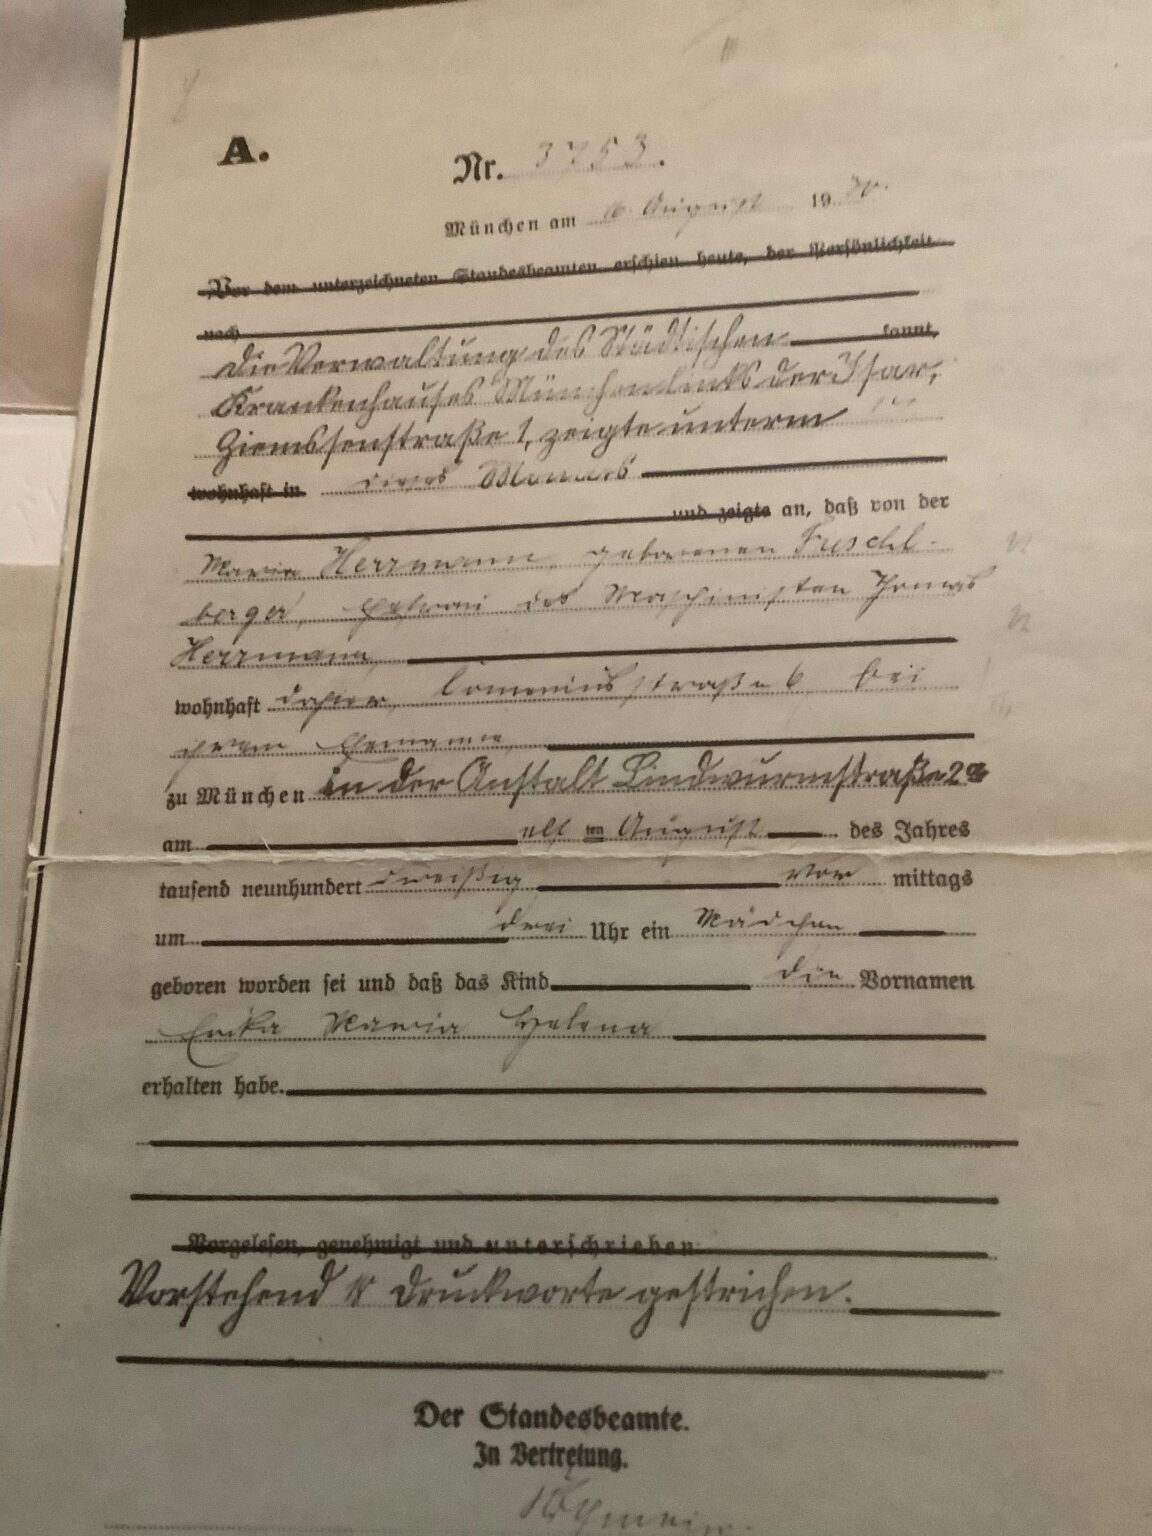 A.
Nr. 3753.
München am 16. August 1930.
Vor dem unterzeichneten Standesbeamten erschien heute, der Persönlichkeit
nach kannt,
Die Verwaltung des Städtischen
Krankenhauses München links der Isar,
Ziemssenstraße 1, zeigte unterm
wohnhaft in dieses Monats
und zeigte an, daß von der
Maria Herrmann, geborenen Fuschl-
berger, Ehefrau des Maschinisten Thomas
Herrmann,
wohnhaft dahier, Comeniusstraße 6 bei
ihrem Ehemanne,
zu München in der Anstalt Lindwurmstraße
am elf ten August des Jahres
tausend neunhundert dreißig vor mittags
um drei Uhr ein Mädchen
geboren worden sei und daß das Kind die Vornamen
Erika Maria Helena
erhalten habe.
Vorgelesen, genehmigt und unterschrieben
Vorstehend Druckworte gestrichen.
Der Standesbeamte.
In Vertretung.